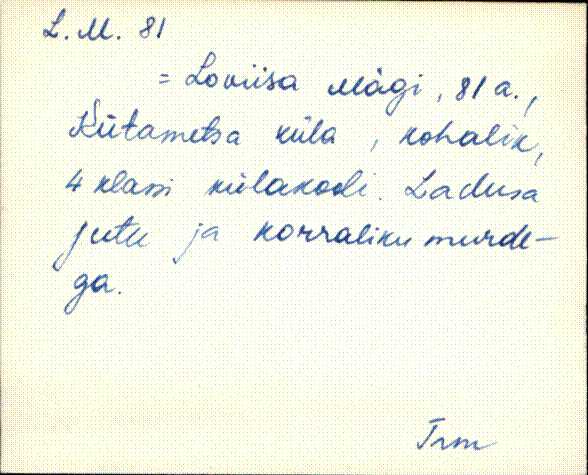 L. M. 81
= Loviisa Mägi, 81 a.,
Kütametsa küla, kohalik,
4 klassi külakooli. Ladusa
jutu ja korraliku murde-
ga.
Trm